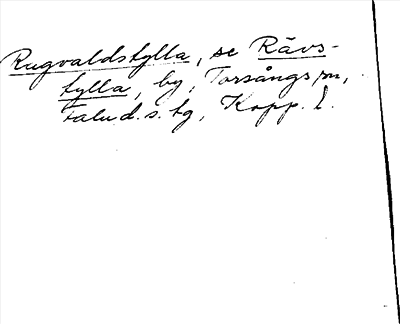 Rugvaldstylla, se Rävs-
tylla, by, Torsångs sn,
Falu d. s. tg, Kopp. l.